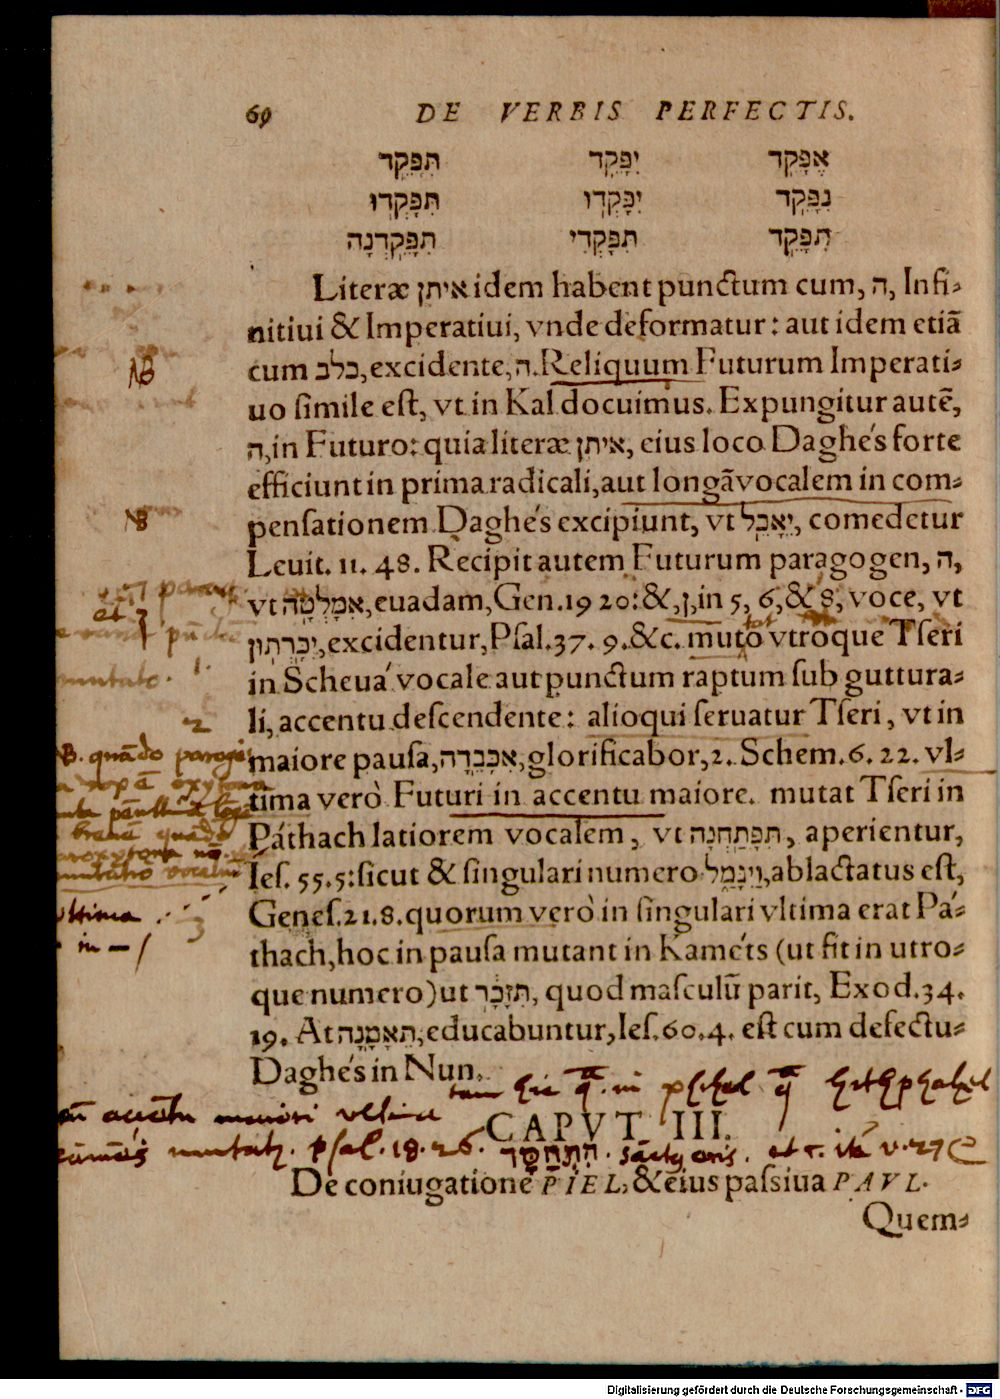 69 DE VERBIS PERFECTIS.
אֶפָּקֵד יִפָּקֵד תִּפָּקֵד
נִפָּקֵד יִפָּקְדוּ תִּפָּקְדוּ
תִּפָּקֵד תִּפָּקְדִי תִּפָּקֵדְנָה
Literæ איתן idem habent punctum cum, ה, Infi-
nitiui & Imperatiui, vnde deformatur: aut idem etiã
cum בלב, excidente, ה. Reliquum Futurum Imperati-
uo simile est, vt in Kal docuimus. Expungitur autẽ,
ה, in Futuro: quia literæ איתן, eius loco Daghés forte
efficiunt in prima radicali, aut longã vocalem in com-
pensationem Daghés excipiunt, vt יֵאָכֵל, comedetur
Leuit. 11. 48. Recipit autem Futurum paragogen, ה,
vt אִמָּלְטָה, euadam, Gen. 19 20: &, ן, in 5, 6, & 8, voce, vt
יִכָּרֵתוּן, excidentur, Psal. 37. 9. &c. muto vtroque Tseri
in Scheuá vocale aut punctum raptum sub guttura-
li, accentu descendente: alioqui seruatur Tseri, vt in
maiore pausa, אִכָּבֵדָה, glorificabor, 2. Schem. 6. 22. vl-
tima verò Futuri in accentu maiore. mutat Tseri in
Páthach latiorem vocalem, vt תִּפָּתַחְנָה, aperientur,
Ies. 55. 5: sicut & singulari numero וַיִּגָּמַל, ablactatus est,
Genes. 21. 8. quorum verò in singulari vltima erat Pá-
thach, hoc in pausa mutant in Kaméts (ut fit in utro-
que numero) ut תִּזָּכָר, quod masculũ parit, Exod. 34.
19. At תֵּאָמַנָה, educabuntur, Ies. 60. 4. est cum defectu
Daghés in Nun.
CAPVT III.
De coniugatione PIEL, & eius passiua PAVL.
Quem-
NB
NB
et ן
mutato. 1.
2
NB. quãdo parogi
vltima
3
in
accẽtu maiori vltima
mutat. psal. 18. 26. הִתְחַסָּד v. 27